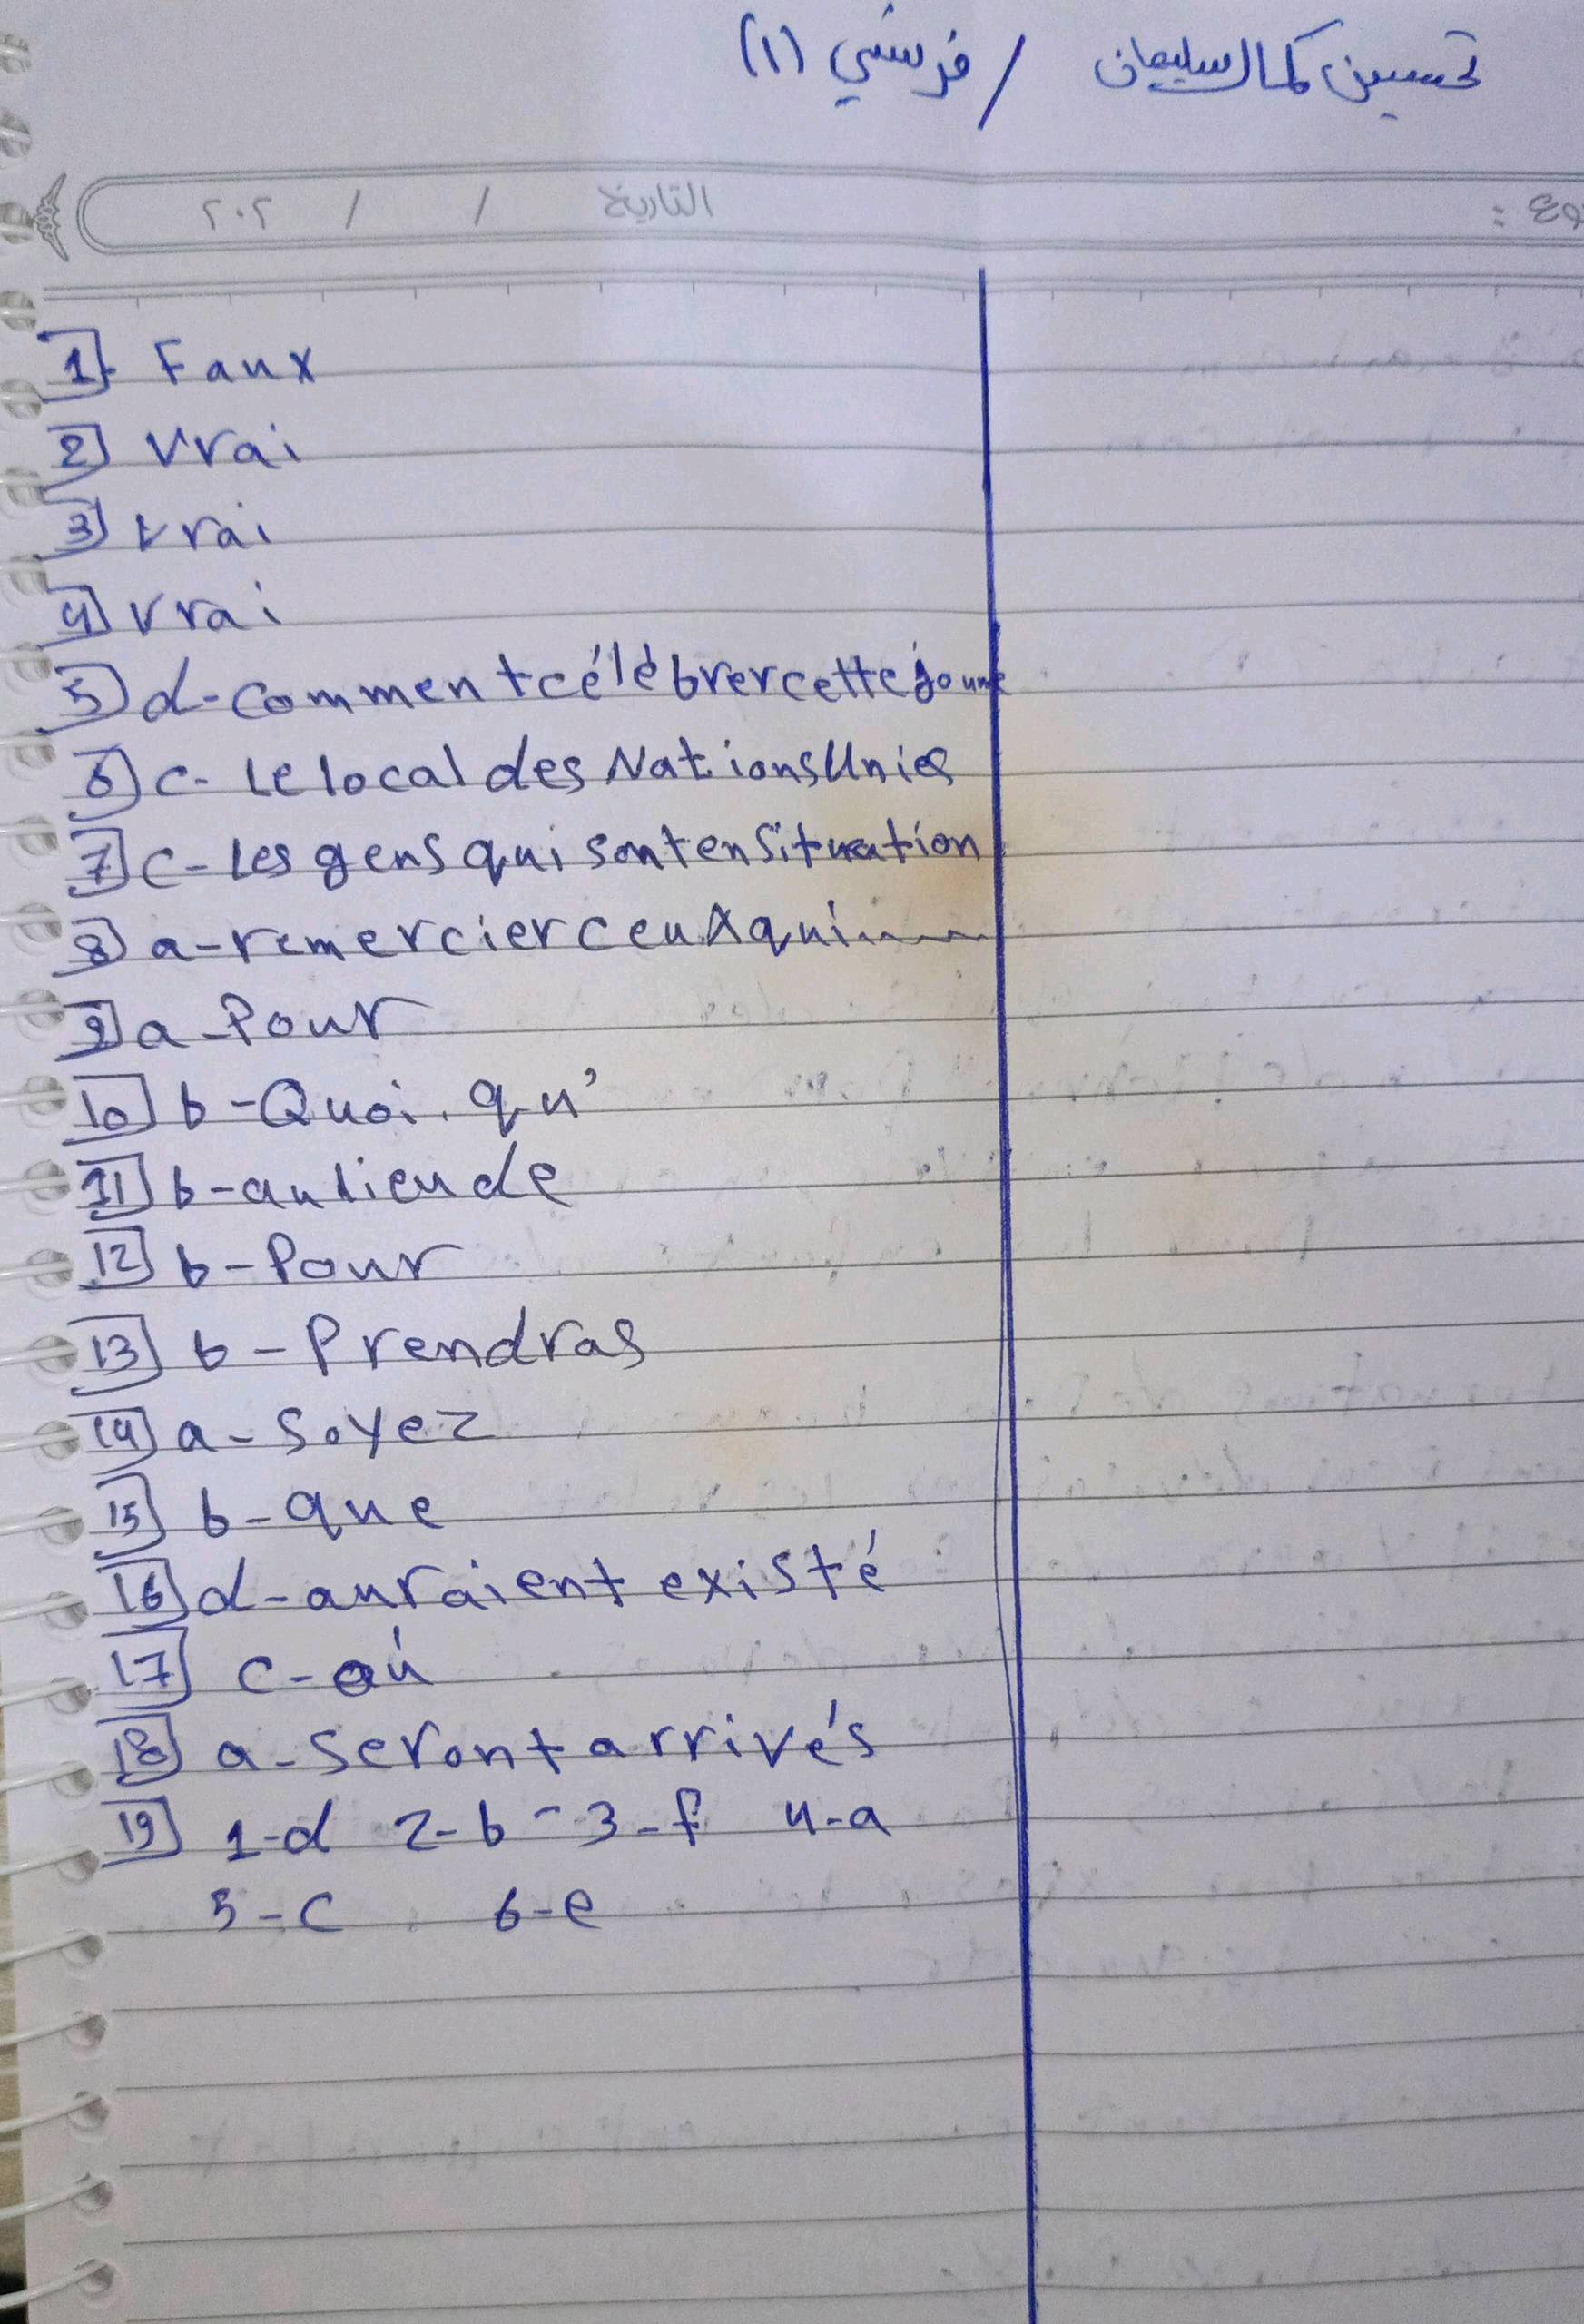 تحسين كمال سليمان / فرنسي (١)
التاريخ / / ٢٠٢
1 Faux
2 Vrai
3 Vrai
4 Vrai
5 d-comment célébrer cette
6 c- Le local des Nations Unies
7 c- Les gens qui sont en situation
8 a-remercier ceux qui
9 a-Pour
10 b-Quoi. qu'
11 b-au lieu de
12 b-Pour
13 b-Prendras
14 a-Soyez
15 b-que
16 d-auraient existé
17 c-où
18 a-Seront arrivés
19 1-d 2-b - 3-f 4-a
5-c 6-e